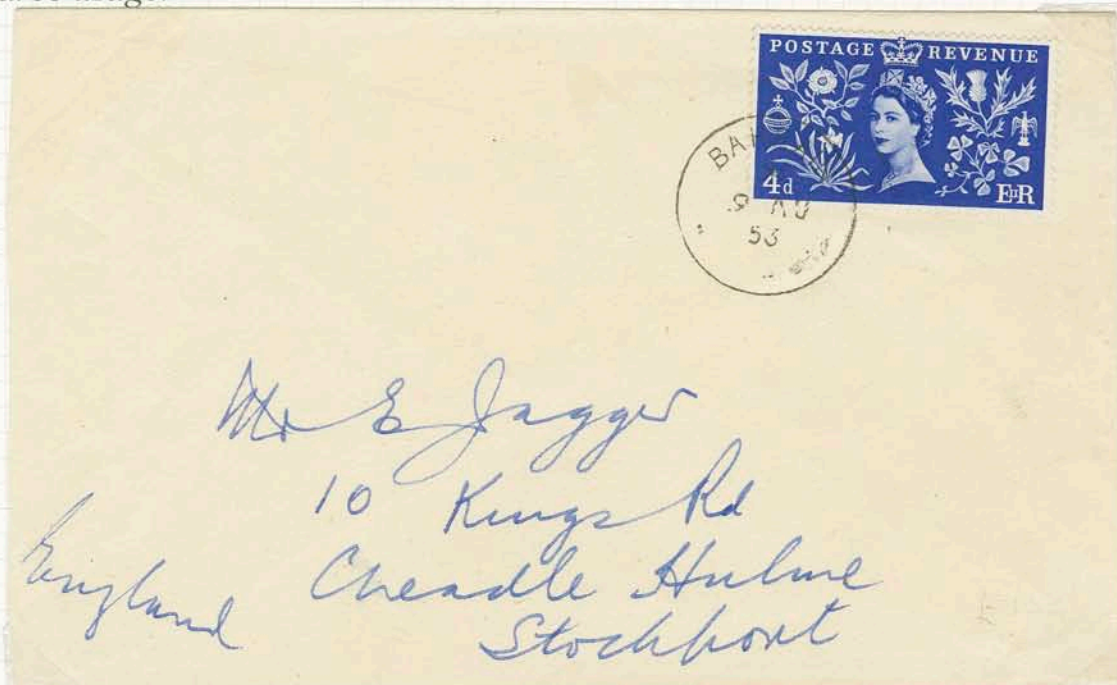 POSTAGE REVENUE
4d
EIIR
9 AU
53
Mr E Jagger
10 Kings Rd
Cheadle Hulme
Stockport
England